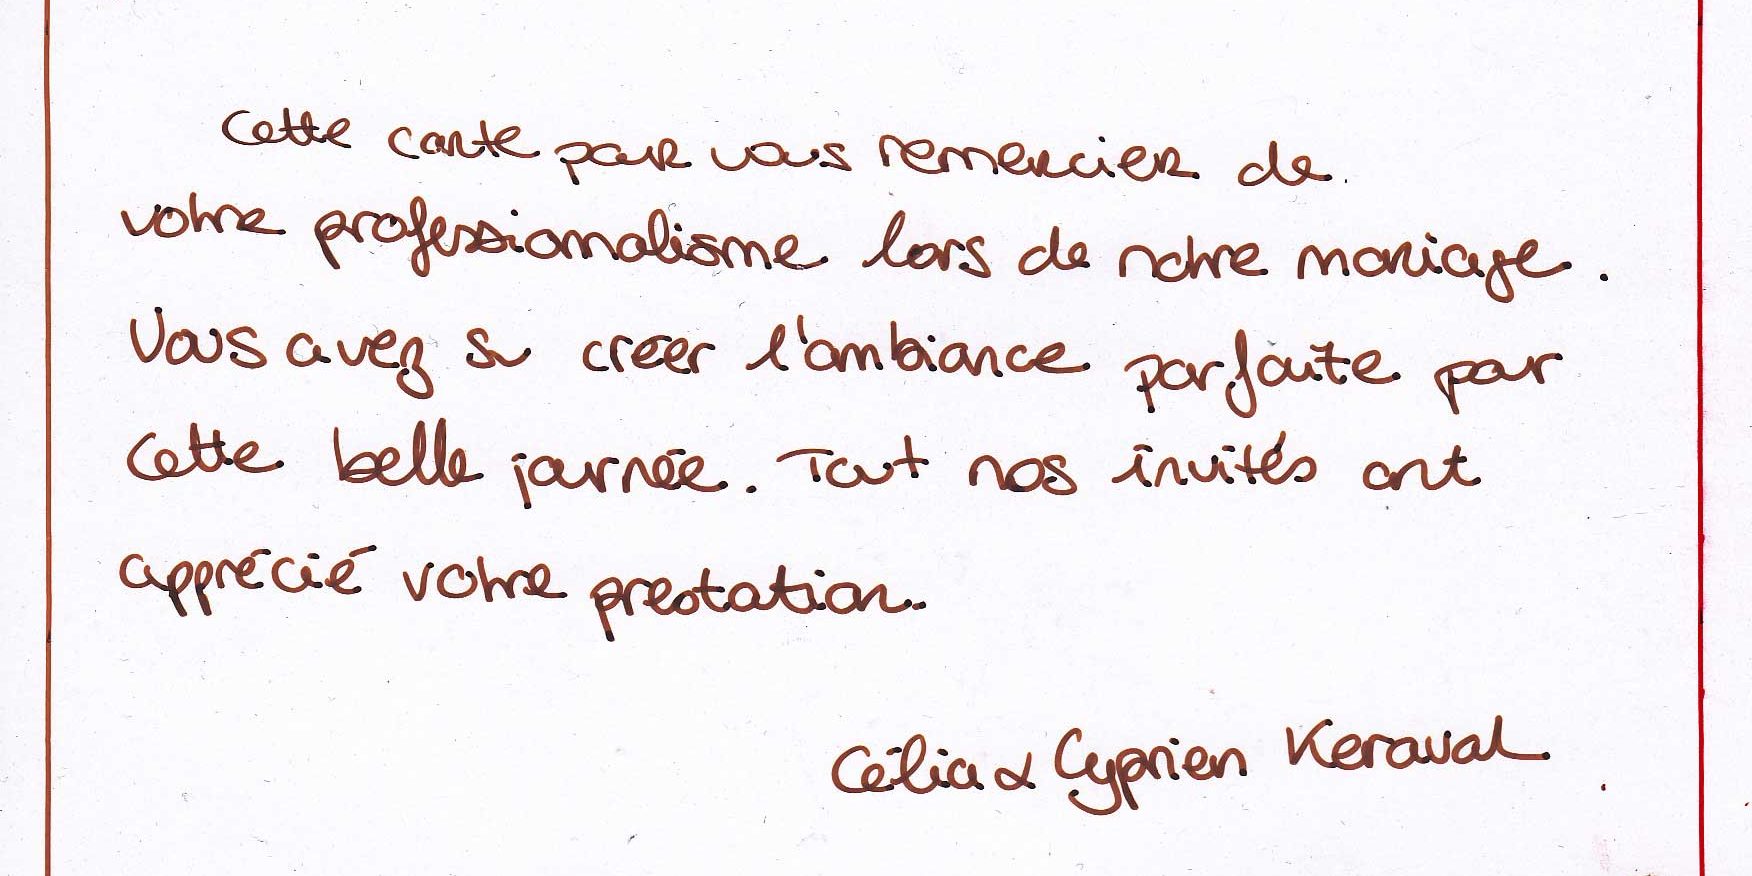 Cette carte pour vous remercier de
votre professionnalisme lors de notre mariage.
Vous avez su créer l'ambiance parfaite pour
cette belle journée. Tout nos invités ont
apprécié votre prestation.
Célia & Cyprien Keraval